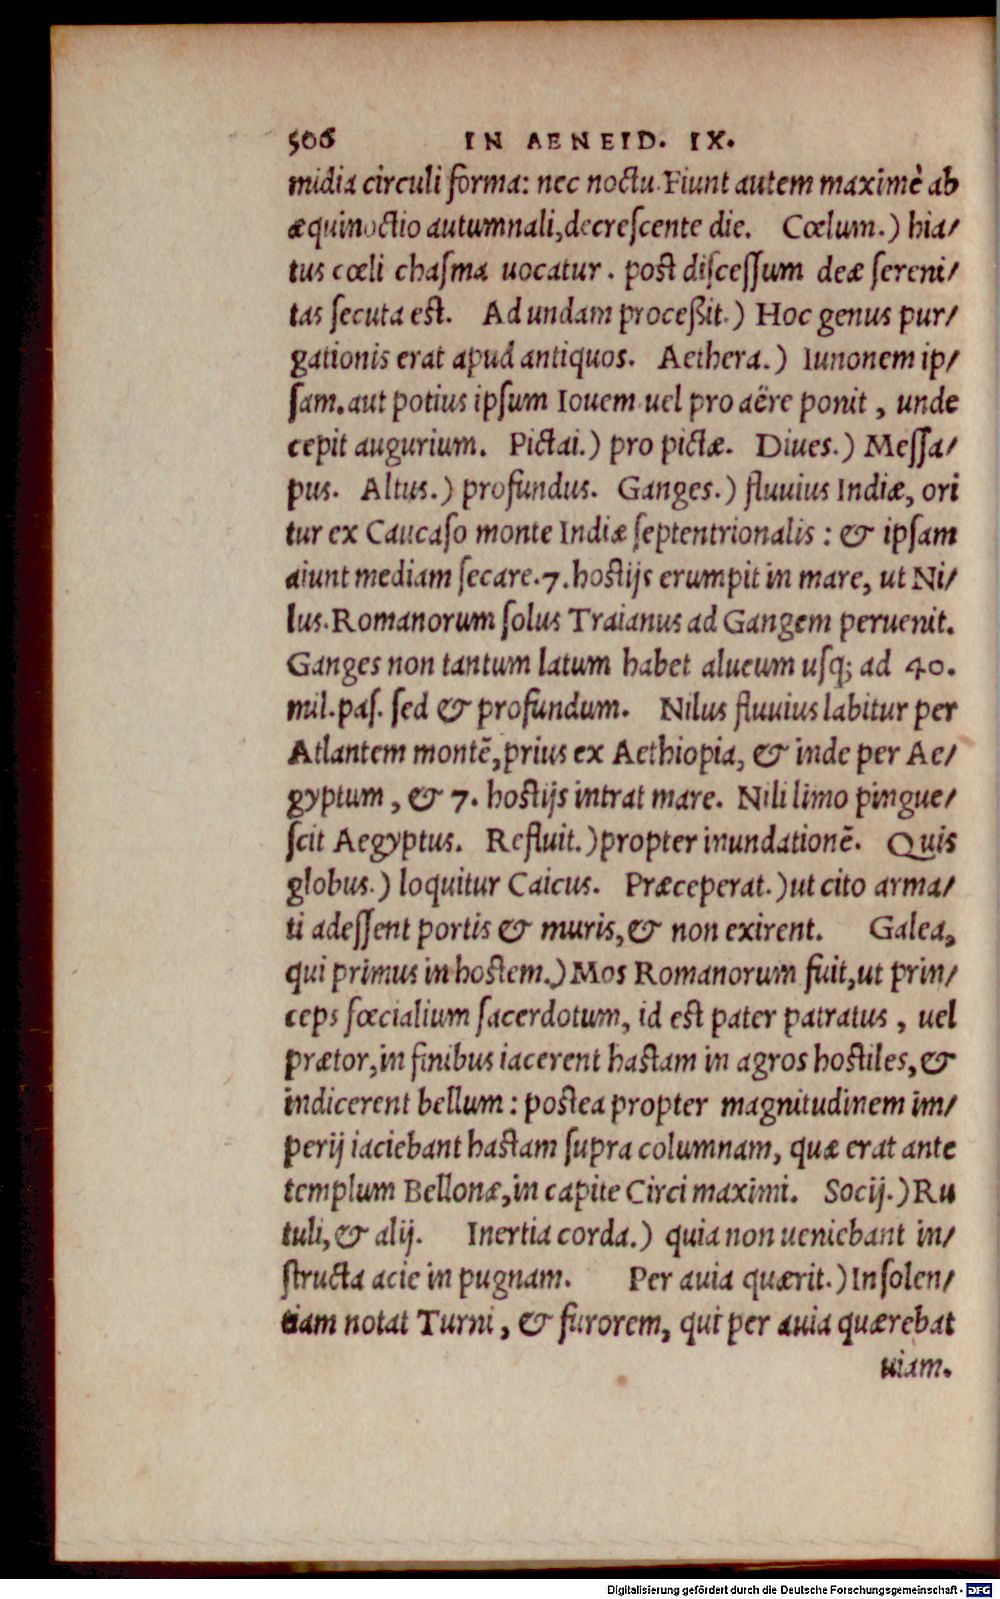 506 IN AENEID. IX.
midia circuli forma: nec noctu. Fiunt autem maximè ab
æquinoctio autumnali, decreſcente die. Cœlum.) hia/
tus cœli chaſma uocatur. poſt diſceſſum deæ ſereni/
tas ſecuta eſt. Ad undam proceßit.) Hoc genus pur/
gationis erat apud antiquos. Aethera.) Iunonem ip/
ſam. aut potius ipſum Iouem uel pro aëre ponit, unde
cepit augurium. Pictai.) pro pictæ. Diues.) Meſſa/
pus. Altus.) profundus. Ganges.) fluuius Indiæ, ori
tur ex Caucaſo monte Indiæ ſeptentrionalis: & ipſam
aiunt mediam ſecare. 7. hoſtijs erumpit in mare, ut Ni/
lus. Romanorum ſolus Traianus ad Gangem peruenit.
Ganges non tantum latum habet alueum uſq; ad 40.
mil. paſ. ſed & profundum. Nilus fluuius labitur per
Atlantem montē, prius ex Aethiopia, & inde per Ae/
gyptum, & 7. hoſtijs intrat mare. Nili limo pingue/
ſcit Aegyptus. Refluit.) propter inundationē. Quis
globus.) loquitur Caicus. Præceperat.) ut cito arma/
ti adeſſent portis & muris, & non exirent. Galea,
qui primus in hoſtem.) Mos Romanorum fuit, ut prin/
ceps fœcialium ſacerdotum, id eſt pater patratus, uel
prætor, in finibus iacerent haſtam in agros hoſtiles, &
indicerent bellum: poſtea propter magnitudinem im/
perij iaciebant haſtam ſupra columnam, quæ erat ante
templum Bellonæ, in capite Circi maximi. Socij.) Ru
tuli, & alij. Inertia corda.) quia non ueniebant in/
ſtructa acie in pugnam. Per auia quærit.) Inſolen/
tiam notat Turni, & furorem, qui per auia quærebat
uiam.
Digitalisierung gefördert durch die Deutsche Forschungsgemeinschaft - DFG